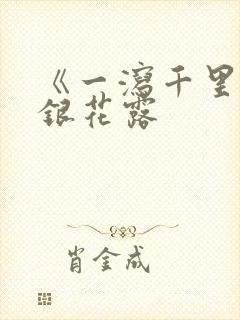 《一泻千里
银花露
肖金成